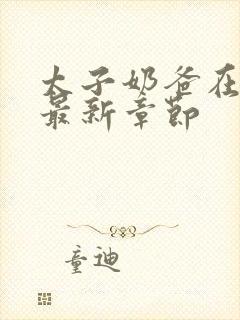 太子奶爸在
最新章节
童迪